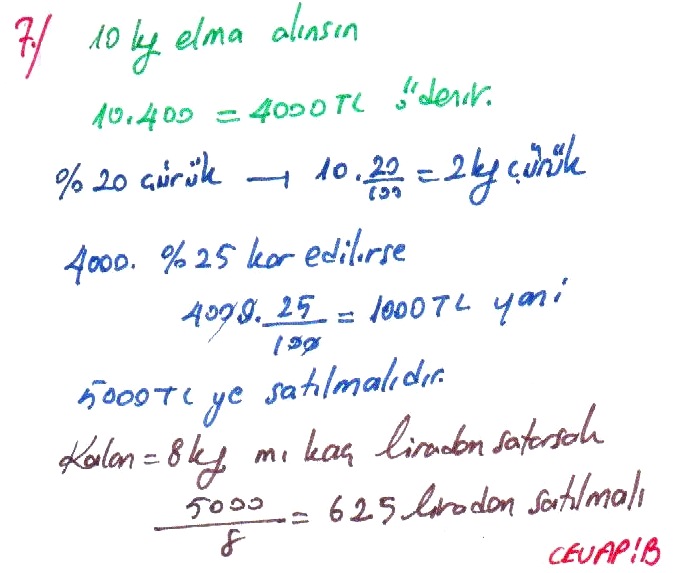 7./ 10 kg elma alınsın
10.400 = 4000 TL ödenir.
% 20 çürük → 10. 20/100 = 2 kg çürük
4000. % 25 kar edilirse
4000. 25/100 = 1000 TL yani
5000 TL ye satılmalıdır.
Kalan = 8 kg mı kaç liradan satarsak
5000/8 = 625 liradan satılmalı
CEVAP! B